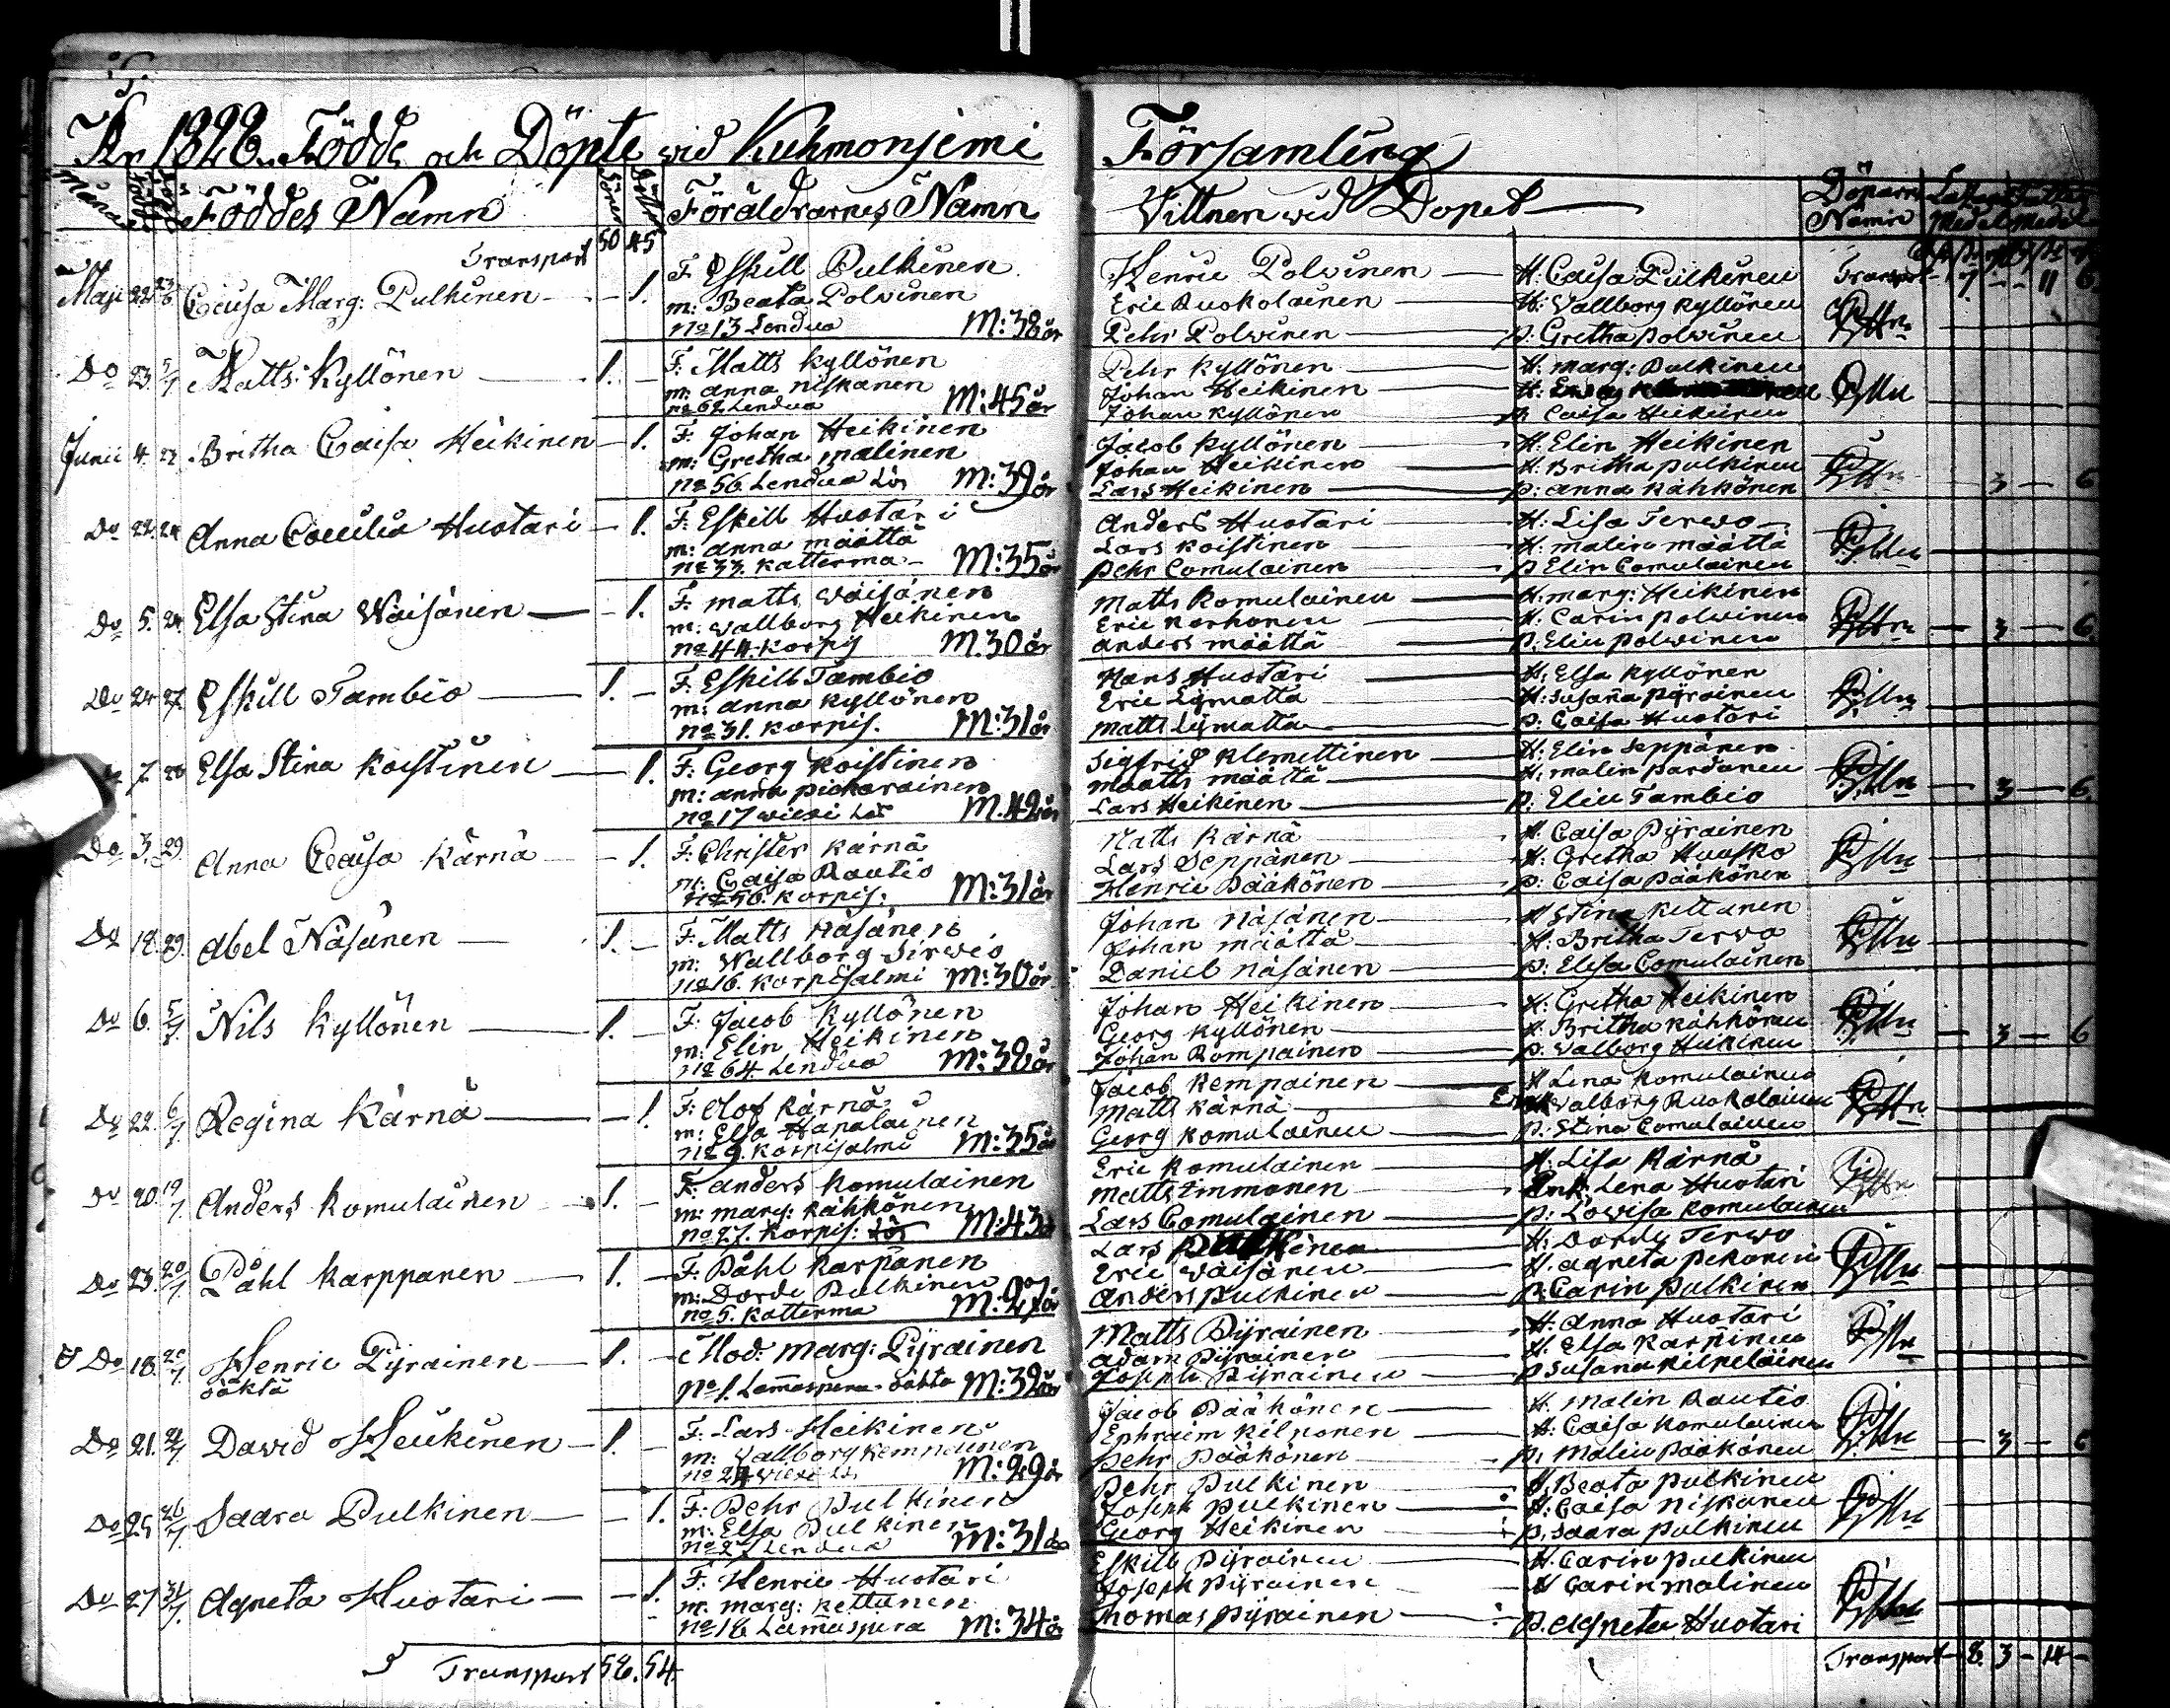 År 1828. Födde och Döpte vid Kuhmonjemi Församling
Månad Födde Döpte Föddes Namn Söner Döttr. Föräldrarnes Namn Vittnen vid Dopet Döparns Namn
Transport 50 45 Transport 7. - - 11 6.
Maji 22 Caisa Marg: Pulkinen - 1. F. Eskill Pulkinen Henric Polvinen H: Caisa Pulkinen
m: Beata Polvinen Eric Ruokolainen H: Vallborg Kyllönen
No 13 Lendua M: 38 år Pehr Polvinen p: Gretha Polvinen
Do 23. 5/7 Matts Kyllönen 1. - F. Matts Kyllönen Pehr Kyllönen H: Marg: Pulkinen
m: Anna Niskanen Johan Heikinen H:
No 62 Lendua M: 45 år Johan Kyllönen p: Caisa Heikinen
Junii 4. 22 Britha Caisa Heikinen - 1. F. Johan Heikinen Jacob Kyllönen H: Elin Heikinen
m: Gretha Malinen Johan Heikinen H: Britha Pulkinen
No 56 Lendua Lös M: 39 år Lars Heikinen p: Anna Kähkönen 3 - 6
Do 22. 24 Anna Caecilia Huotari - 1. F. Eskill Huotari Anders Huotari H: Lisa Terwo
m: Anna Määttä Lars Koistinen H: Malin Määttä
No 33. Katterma M: 35 år Pehr Comulainen p Elin Comulainen
Do 5. 24. Elsa Stina Wäisänen - 1. F. Matts Wäisänen Matts Komulainen H: Marg: Heikinen
m: Wallborg Heikinen Eric Korhonen H: Carin Polvinen
No 44. Korpis M. 30 år Anders Määttä p: Elin Polvinen - 3 - 6.
Do 24 27. Eskill Tambio 1. - F. Eskill Tambio Hans Huotari H: Elsa Kyllönen
m: Anna Kyllönen Eric Lymatta H: Susana Pyrainen
No 31. Korpis. M: 31 år Matts Lymatta p: Caisa Huotari
Do 7. 28 Elsa Stina Koistinen - 1. F. Georg Koistinen Sigfrid Klemettinen H: Elin Seppänen
m: Anna Pickarainen Matts Määttä H: Malin Pardanen
No 17 Wiexi Lös M. 42 år Lars Heikinen p: Elin Tambio - 3 - 6.
Do 3. 29. Anna Caisa Kärnä - 1. F. Christer Kärnä Matts Kärnä H. Caisa Pyrainen
m: Caisa Rautio Lars Seppänen H: Gretha Huusko
No 50. Korpis: M: 31 år Henric Pääkönen p: Caisa Pääkönen
Do 18. 29. Abel Näsänen 1. - F. Matts Näsänen Johan Näsänen H Stina Kettanen
m: Wallborg Sirwiö Johan Määttä H: Britha Terwo
No 16. Korpisalmi M: 30 år. Daniel Näsänen p: Elisa Comulainen
Do 6. 5/7. Nils Kyllönen 1. - F. Jacob Kyllönen Johan Heikinen H: Gretha Heikinen
m: Elin Heikinen Georg Kyllönen H: Britha Kähkönen
No 64. Lendua M: 38 år Johan Rompainen p. Valborg Heikinen - 3 - 6
Do 22. 6/7 Regina Kärnä - 1. F: Olof Kärnä Jacob Kempainen H Lena Komulainen
m: Elsa Hapalainen Matts Kärnä Enk: Valborg Ruokolainen
No 9. Korpisalmi M: 35 år Georg Komulainen p: Stina Comulainen
Do 20. 19/7 Anders Komulainen 1. - F. Anders Komulainen Eric Komulainen H: Lisa Kärnä
m: Marg: Kähkönen Matts Immonen Enk: Lena Huotari
No 27. Korpis: Lös M: 43 år Lars Comulainen p: Lovisa Komulainen
Do 23. 20/7 Påhl Karppanen 1. - F. Påhl Karpanen Lars Pulkinen H: Dordy Terwo
m: Dordi Pulkinen Eric Wäisänen H. Agneta Pekonen
No 5. Katterma M: 27 år Anders Pulkinen p: Carin Pulkinen
Do 18. 20/7 Henric Pyrainen 1. - Mod: Marg: Pyrainen Matts Pyrainen H. Anna Huotari
oäkta Adam Pyrainen H. Elsa Karpinen
No 1. Lamaspera oäkta M: 32 år Joseph Pyrainen p Susana Kilpeläinen
Do 21. David Heikinen 1. - F. Lars Heikinen Jacob Pääkönen H. Malin Rautio
m: Vallborg Kempainen Ephraim Kilponen H: Caisa Komulainen
No 24 Wiexi Lös M: 29 år Pehr Pääkönen p. Malin Pääkönen - 3 - 6
Do 25 26/7 Saara Pulkinen - 1. F: Pehr Pulkinen Pehr Pulkinen H. Beata Pulkinen
m: Elsa Pulkinen Joseph Pulkinen H: Caisa Niskanen
No 27 Lendua M: 31 år Georg Heikinen p. Saara Pulkinen
Do 27 31/7. Agneta Huotari - 1. F. Henric Huotari Eskill Pyrainen H. Carin Pulkinen
m: Marg: Kettunen Joseph Pyrainen H Carin Malinen
No 18 Lamaspera M: 34 år Thomas Pyrainen p. Agneta Huotari
Transport 58. 54. Transport 8. 3 - 14 -